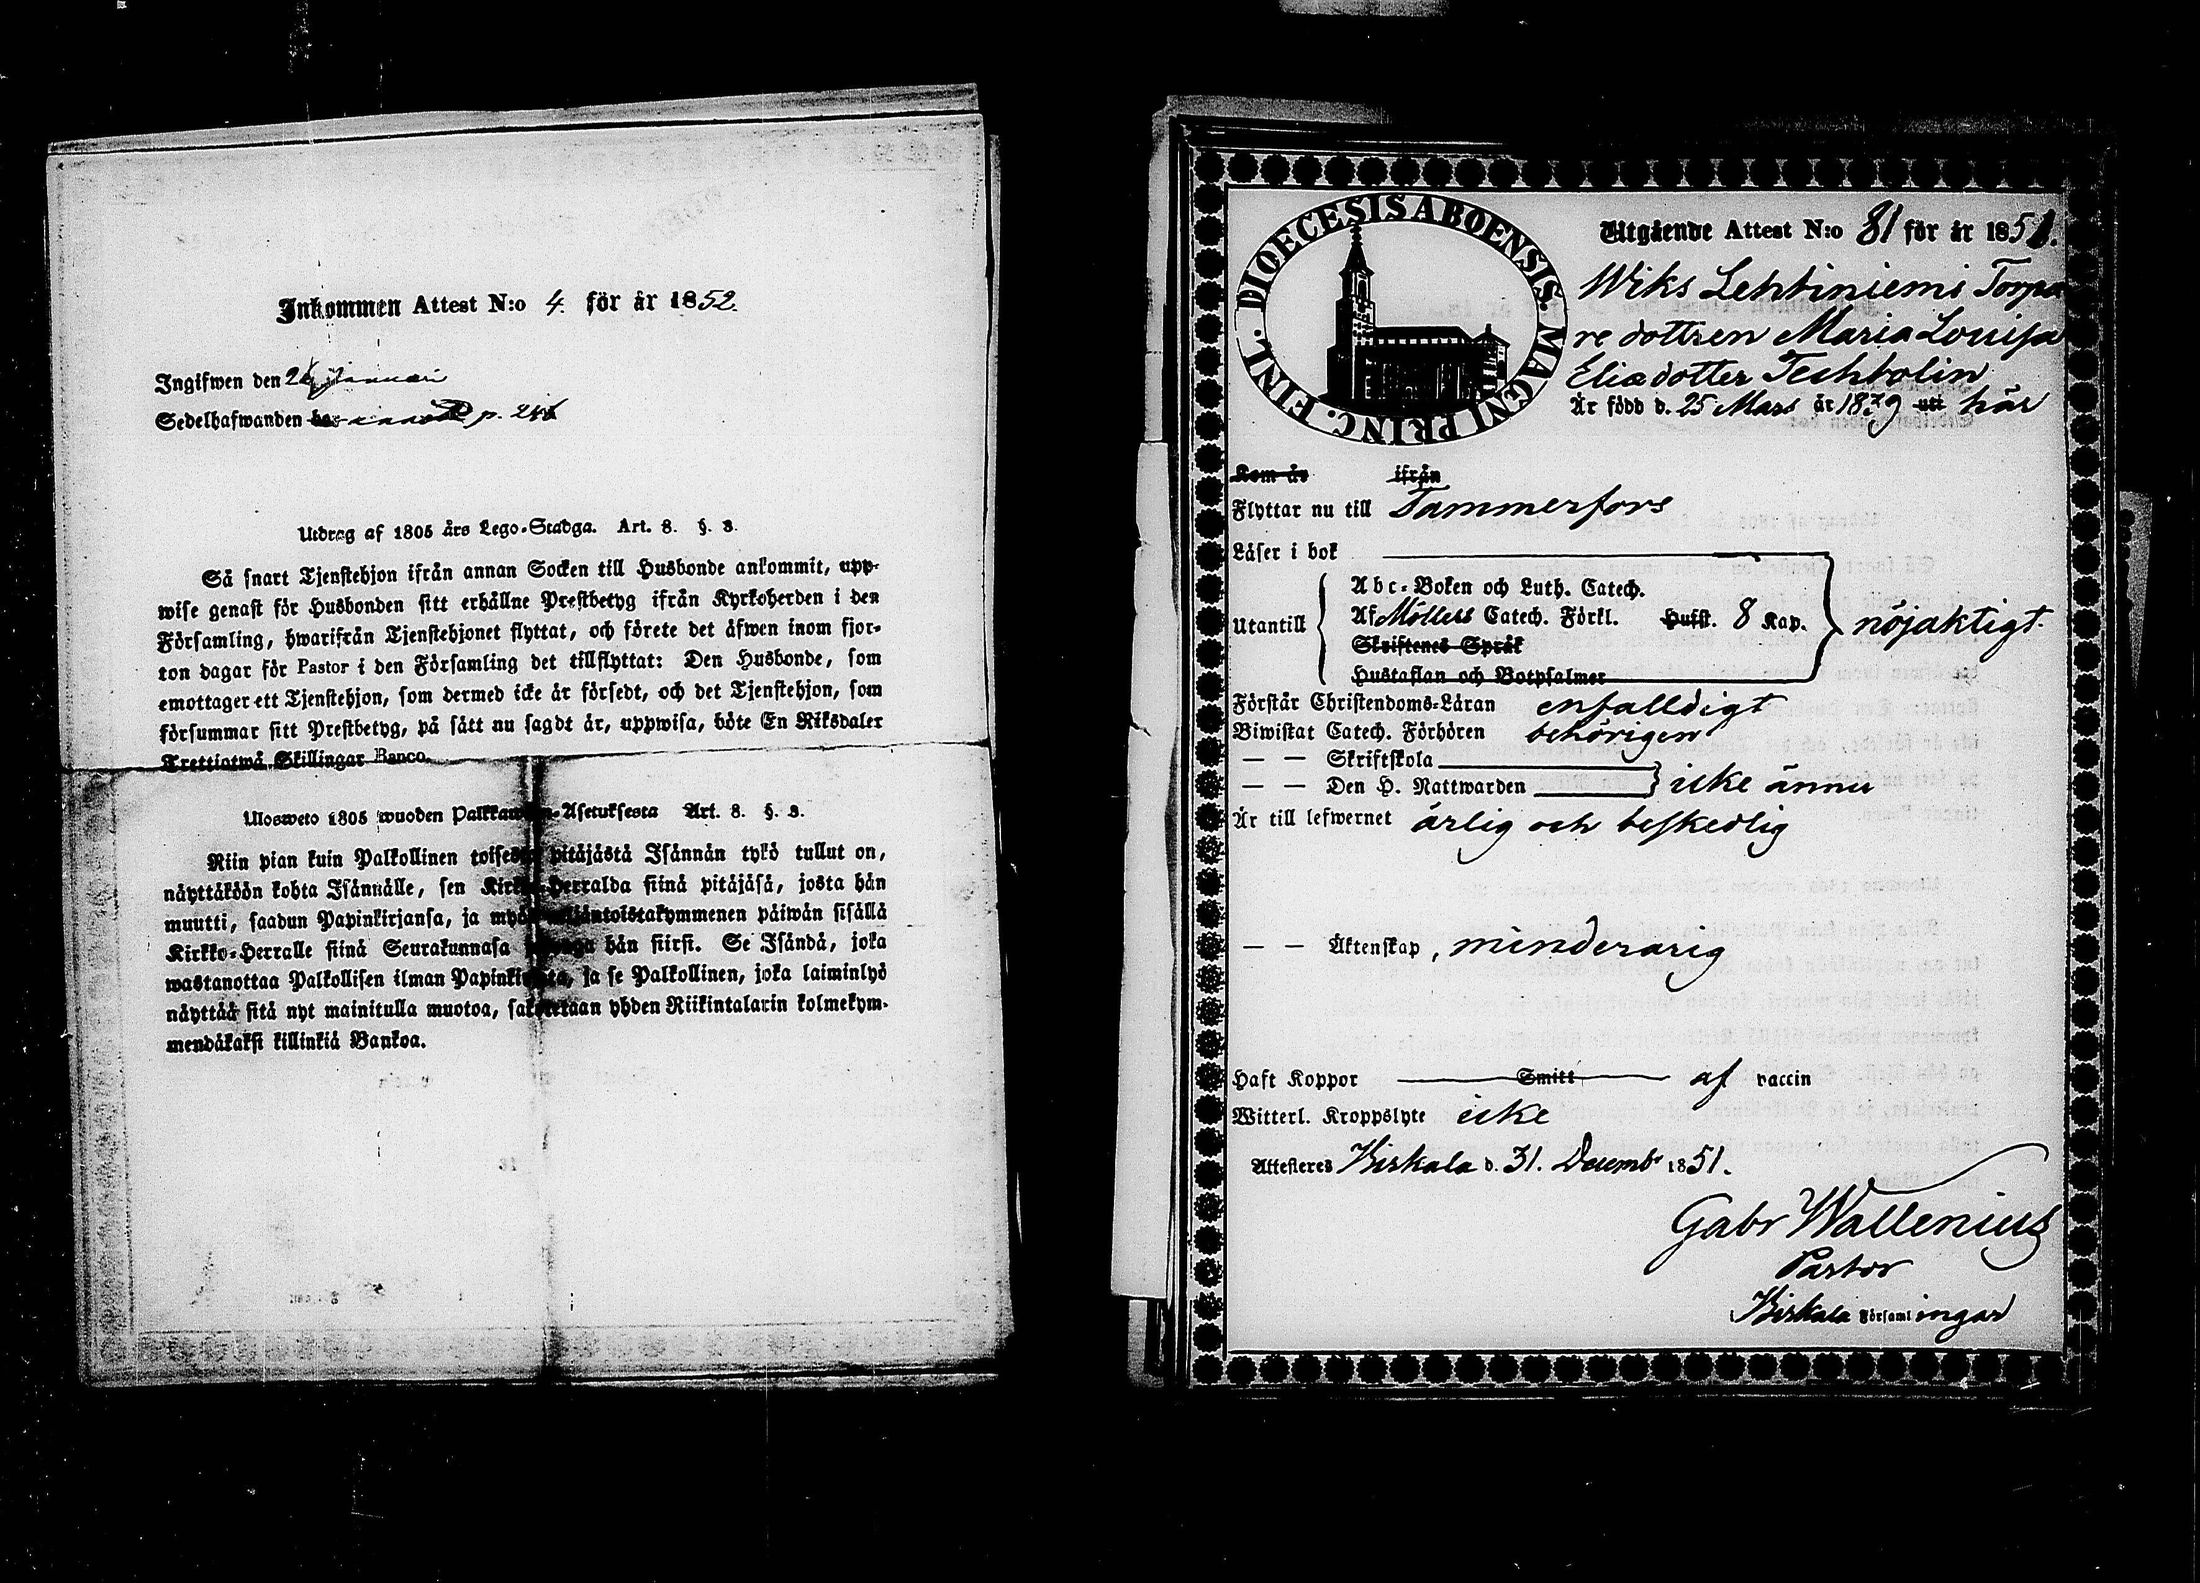 Inkommen Attest N:o 4. för år 1852.
Ingifwen den 24 Januari
Sedelhafwanden p. 244
Utdrag af 1805 års Lego-Stadga. Art. 8. §. 3.
Så snart Tjenstehjon ifrån annan Socken till Husbonde ankommit, upp-
wise genast för Husbonden sitt erhållne Prestbetyg ifrån Kyrkoherden i den
Församling, hwarifrån Tjenstehjonet flyttat, och förete det äfwen inom fjor-
ton dagar för Pastor i den Församling det tillflyttat: Den Husbonde, som
emottager ett Tjenstehjon, som dermed icke är försedt, och det Tjenstehjon, som
försummar sitt Prestbetyg, på sätt nu sagdt är, uppwisa, böte En Riksdaler
Trettiotwå Skillingar Banco.
Ulosweto 1805 wuoden Palkkawäen-Asetuksesta Art. 8. §. 3.
Niin pian kuin Palkollinen toisesta pitäjästä Isännän tykö tullut on,
näyttäköön kohta Isännälle, sen Kirkko-Herralda siinä pitäjäsä, josta hän
muutti, saadun Papinkirjansa, ja myös neljäntoistakymmenen päiwän sisällä
Kirkko-Herralle siinä Seurakunnasa hän siirsi. Se Isändä, joka
wastanottaa Palkollisen ilman Papinkirjata, ja se Palkollinen, joka laiminlyö
näyttää sitä nyt mainitulla muotoa, sakotetaan yhden Riikintalarin kolmekym-
mendäkaksi killinkiä Bankoa.
DIOECESIS ABOENSIS. MAGNI PRINC. FINL.
Utgående Attest N:o 81 för år 1851.
Wiks Lehtiniemi Torpa
re dottren Maria Louisa
Eliædotter Techtolin
Är född d. 25 Mars år 1839 uti här
Kom år ifrån
Flyttar nu till Tammerfors
Läser i bok
Utantill
Abc-Boken och Luth. Catech.
Af Möllers Catech. Förkl. Hufst. 8 Kap.
nöjaktigt
Skriftenes Språk
Hustaflan och Botpsalmer
Förstår Christendoms-Läran enfalldigt
Biwistat Catech. Förhören behörigen
— — Skriftskola
— — Den H. Nattwarden icke ännu
Är till lefwernet ärlig och beskedlig
— — Äktenskap, minderarig
Haft Koppor Smitt af vaccin
Witterl. Kroppslyte icke
Attesteres Birkala d. 31. Decemb. 1851.
Gabr Wallenius
Pastor
Birkala Församlingar